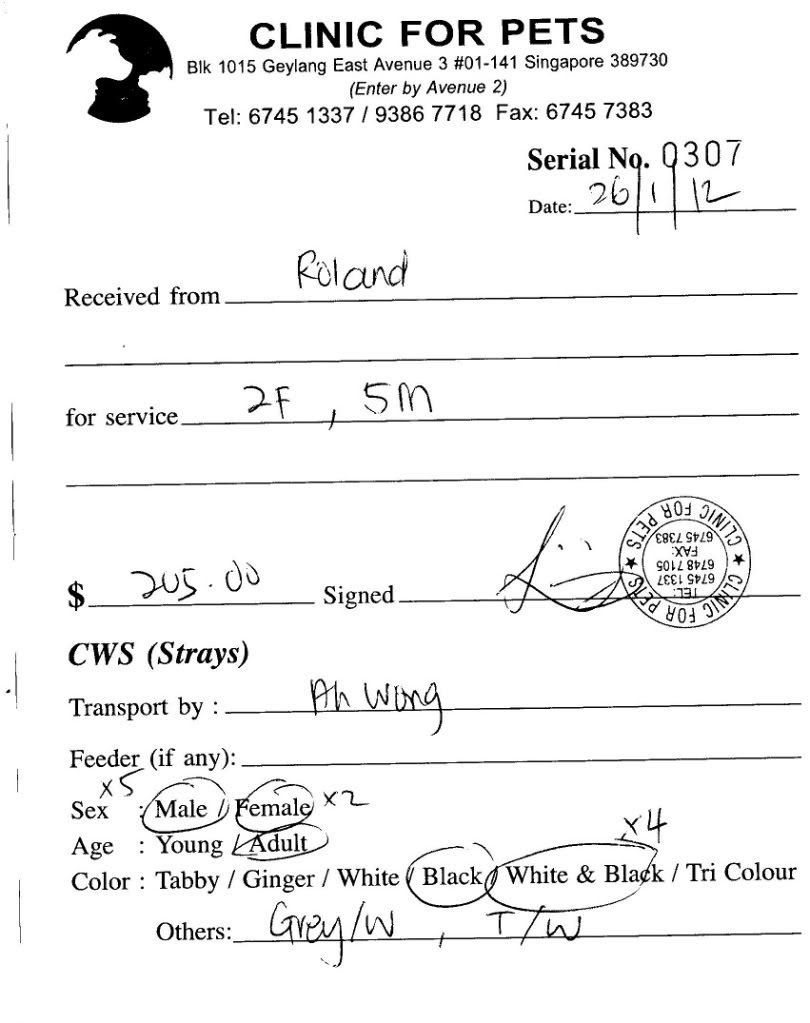 CLINIC FOR PETS
Blk 1015 Geylang East Avenue 3 #01-141 Singapore 389730
(Enter by Avenue 2)
Tel: 6745 1337 / 9386 7718 Fax: 6745 7383
Serial No. 0307
Date: 26/1/12
Received from Roland
for service 2F, 5M
$ 205.00 Signed
CLINIC FOR PETS ★ CLINIC FOR PETS ★
TEL:
6745 1337
6748 7105
FAX:
6745 7383
CWS (Strays)
Transport by : Ah Wong
Feeder (if any):
x5
Sex : Male / Female x2
Age : Young / Adult
x4
Color : Tabby / Ginger / White / Black / White & Black / Tri Colour
Others: Grey/W , T/W